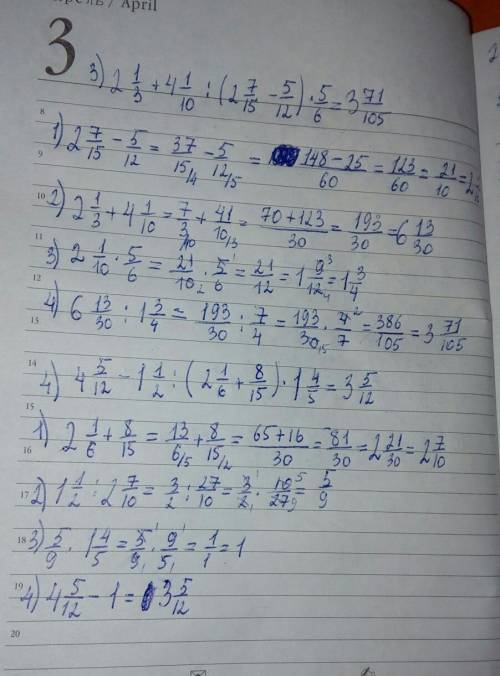 рель / April
3
3) 2 1/3 + 4 1/10 : (2 7/15 - 5/12) · 5/6 = 3 71/105
8
1) 2 7/15 - 5/12 = 37/15/4 - 5/12/5 = 148-25/60 = 123/60 = 21/10 = 2
9
10
2) 2 1/3 + 4 1/10 = 7/3/10 + 41/10/3 = 70+123/30 = 193/30 = 6 13/30
11
3) 2 1/10 · 5/6 = 21/10 2 · 5 1/6 = 21/12 = 1 9 3/12 4 = 1 3/4
12
4) 6 13/30 : 1 3/4 = 193/30 : 7/4 = 193/30 15 · 4 2/7 = 386/105 = 3 71/105
13
14
4) 4 5/12 - 1 1/2 : (2 1/6 + 8/15) · 1 4/5 = 3 5/12
15
1) 2 1/6 + 8/15 = 13/6/5 + 8/15/2 = 65+16/30 = 81/30 = 2 21/30 = 2 7/10
16
17
2) 1 1/2 : 2 7/10 = 3/2 : 27/10 = 3 1/2 1 · 10 5/27 9 = 5/9
18
3) 5/9 · 1 4/5 = 5 1/9 1 · 9 1/5 1 = 1/1 = 1
19
4) 4 5/12 - 1 = 3 5/12
20